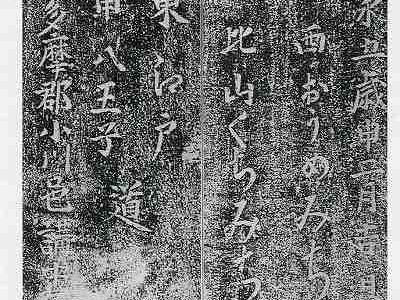 永五歳申二月吉日
西おうめみち
北山くちみち
東江戸
南八王子
道
多摩郡小川邑